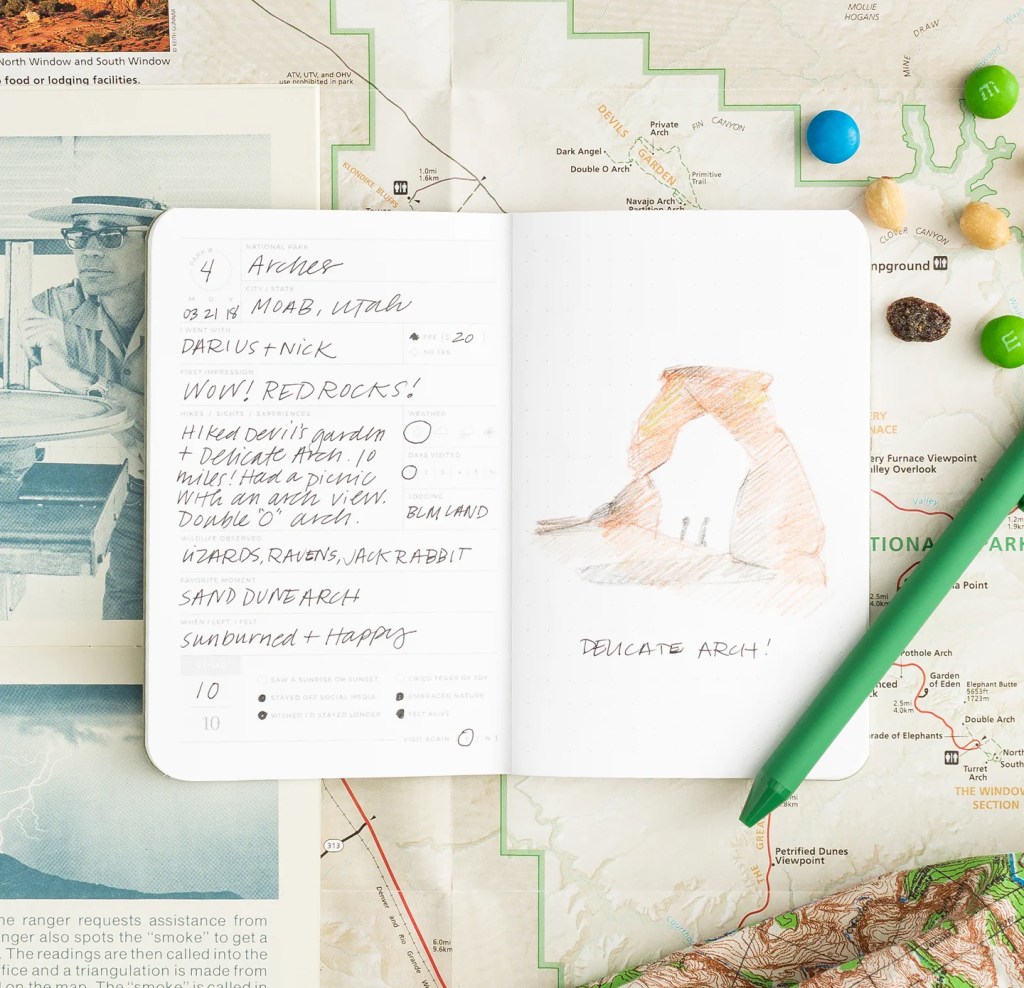 North Window and South Window
food or lodging facilities.
ATV, UTV, and OHV
use prohibited in park
MOLLIE
HOGANS
MINE
DRAW
DEVILS
GARDEN
Private
Arch
FIN CANYON
Dark Angel
Double O Arch
Primitive
Trail
Navajo Arch
Partition Arch
KLONDIKE BLUFFS
1.0mi
1.6km
CLOVER CANYON
m
m
PARK #
4
NATIONAL PARK
Arches
CITY / STATE
MOAB, Utah
M D Y
03 21 18
I WENT WITH
DARIUS + NICK
FEE ($ 20 )
NO FEE
FIRST IMPRESSION
WOW! RED ROCKS!
HIKES / SIGHTS / EXPERIENCES
Hiked Devil's garden
+ Delicate Arch. 10
miles! Had a picnic
with an arch view.
Double "O" arch.
WEATHER
DAYS VISITED
LODGING
BLM LAND
WILDLIFE OBSERVED
LIZARDS, RAVENS, JACK RABBIT
FAVORITE MOMENT
SAND DUNE ARCH
WHEN I LEFT, I FELT
sunburned + Happy
10
10
SAW A SUNRISE OR SUNSET
CRIED TEARS OF JOY
STAYED OFF SOCIAL MEDIA
EMBRACED NATURE
WISHED I'D STAYED LONGER
FELT ALIVE
VISIT AGAIN
DELICATE ARCH!
Viewpoint
Overlook
Valley
Point
2.5mi
4.0km
Pothole Arch
Garden
of Eden
Elephant Butte
5653ft
1723m
2.5mi
4.0km
Double Arch
of Elephants
North
South
Turret
Arch
THE
SECTION
Petrified Dunes
Viewpoint
313
Denver and Rio Grande
6.0mi
9.6km
ranger requests assistance from
also spots the "smoke" to get a
The readings are then called into the
and a triangulation is made from
on the map. The "smoke" is called in